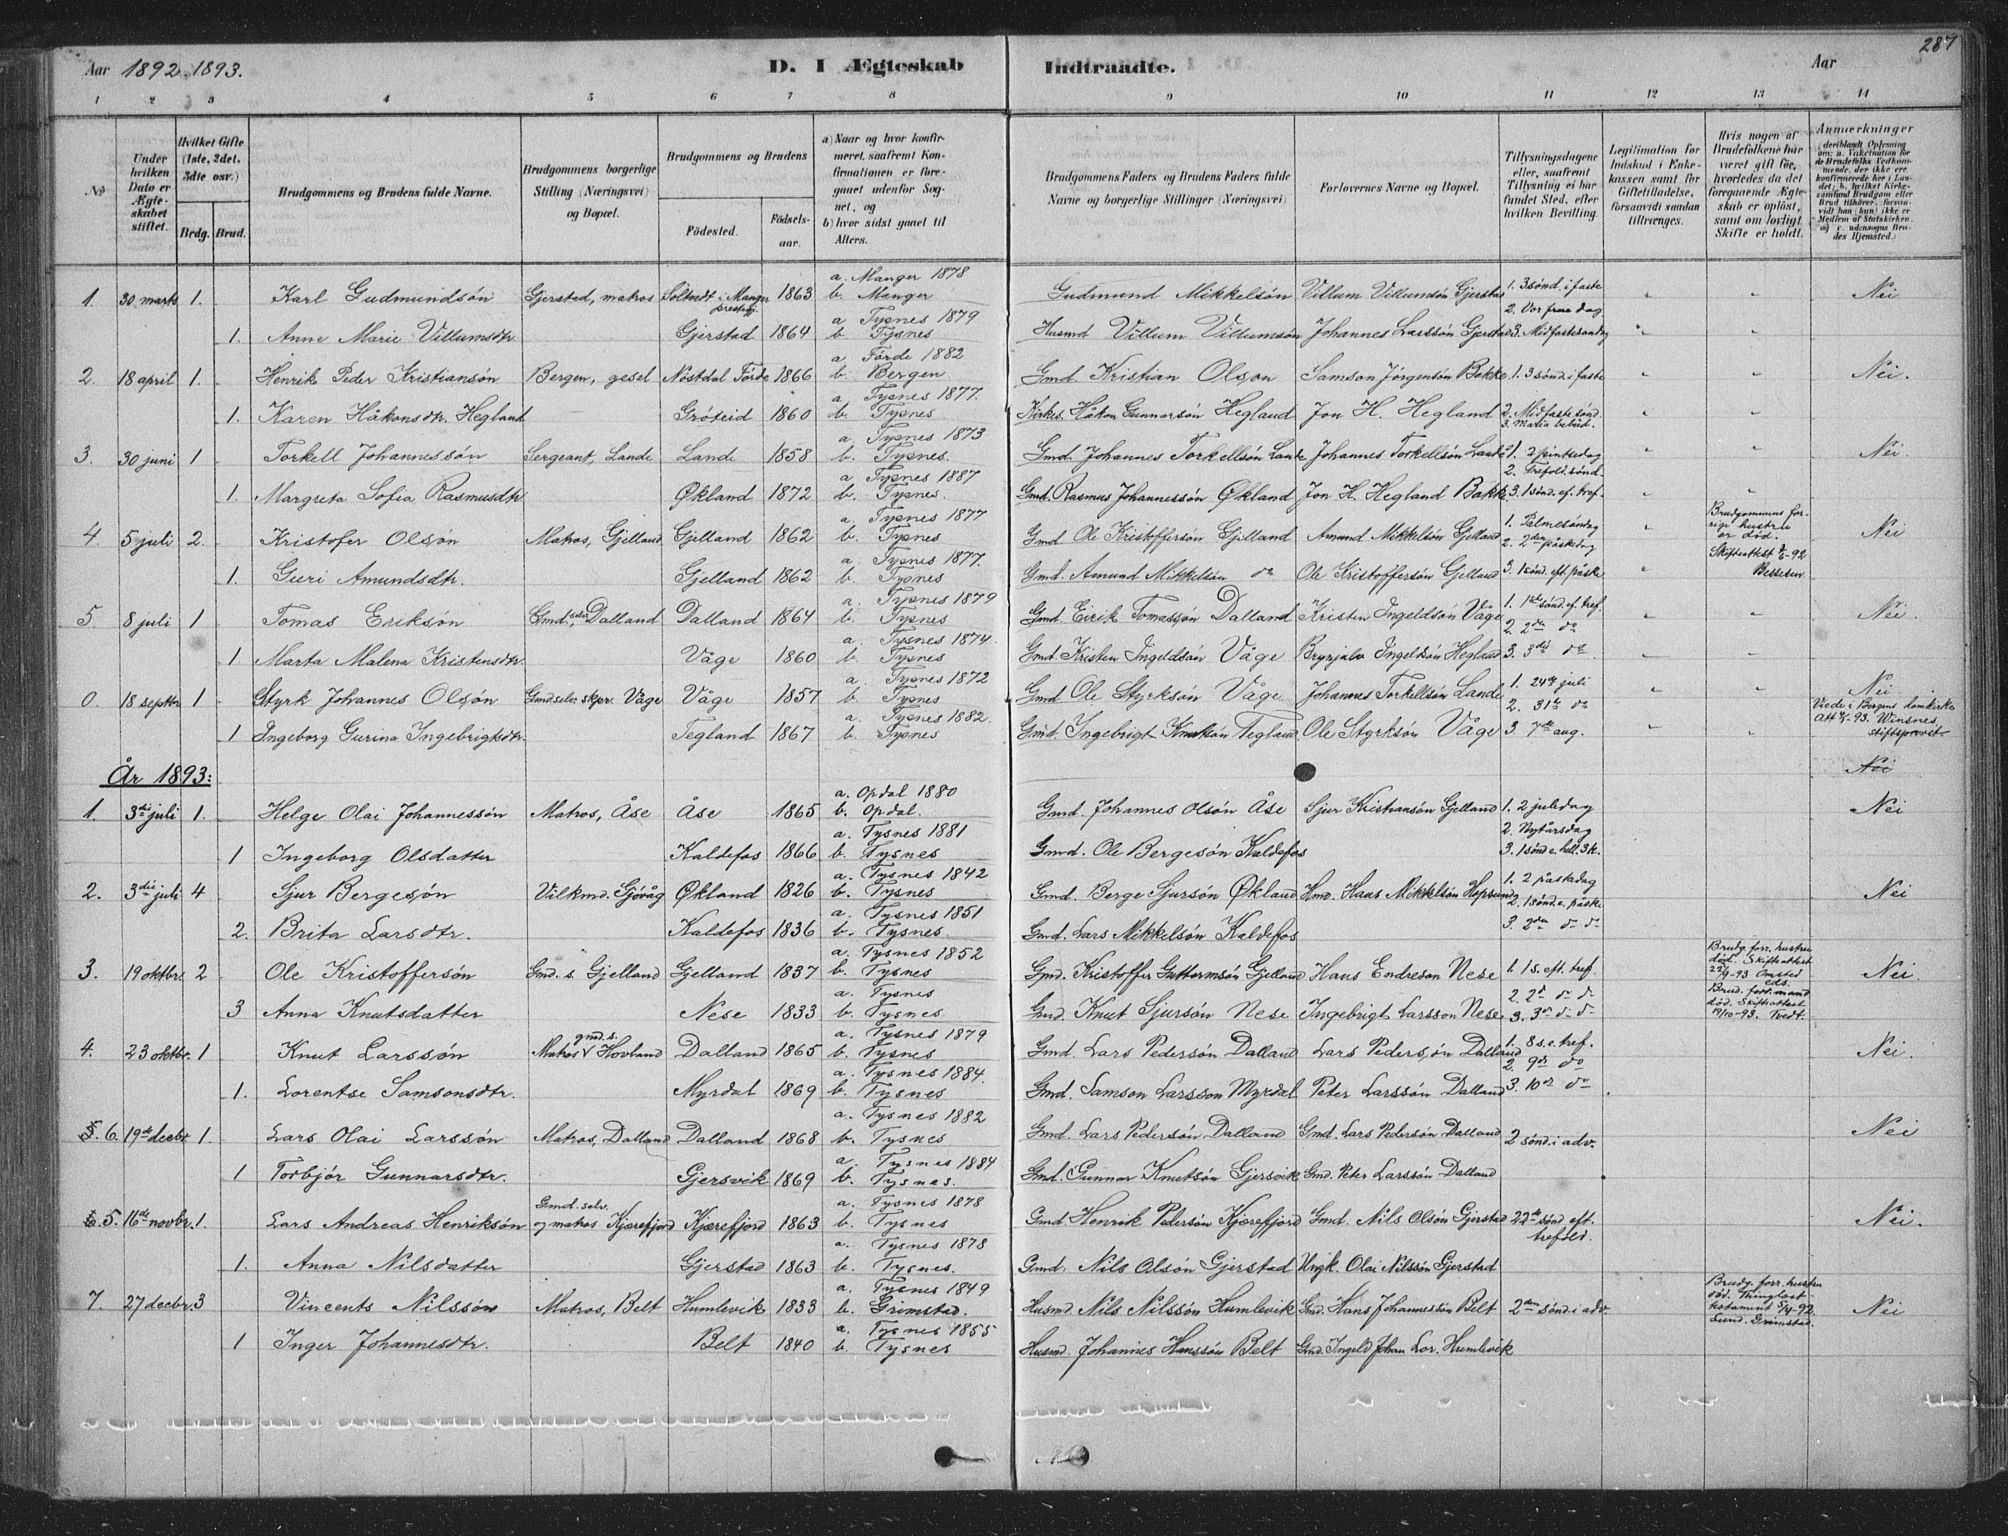 287
Aar 1892-1893. D. I Ægteskab Indtraadte. Aar
1 2 3 4 5 6 7 8 9 10 11 12 13 14
No
Under hvilken Dato er Ægteskabet stiftet.
Hvilket Gifte (1ste, 2det, 3die osv.)
Brdg. Brud.
Brudgommens og Brudens fulde Navne.
Brudgommens borgerlige Stilling (Næringsvei) og Bopæl.
Brudgommens og Brudens
Fødested. Fødselsaar.
a) Naar og hvor konfirmeret, saafremt Konfirmationen er foregaaet udenfor Sognet, og
b) hvor sidst gaaet til Alters.
Brudgommens Faders og Brudens Faders fulde Navne og borgerlige Stillinger (Næringsvei)
Forlovernes Navne og Bopæl.
Tillysningsdagene eller, saafremt Tillysning ei har fundet Sted, efter hvilken Bevilling.
Legitimation for Indskud i Enkekassen samt for Giftetilladelse, forsaavidt saadan tiltrænges.
Hvis nogen af Brudefolkene har været gift før, hvorledes da det foregaaende Ægteskab er opløst, samt om lovligt Skifte er holdt.
Anmærkninger (deriblandt Oplysning om: a. Vakcination for de Brudefolks Vedkommende, der ikke ere konfirmerede her i Landet; b. hvilket Kirkesamfund Brudgom eller Brud tilhører, forsaavidt han (hun) ikke er Medlem af Statskirken, og c. udensogns Brudes Hjemsted.)
1. 30 marts 1. Karl Gudmundsön Gjerstad, matros Soltvedt i Manger prestegj. 1863 a. Manger 1878 b. Manger Gudmund Mikkelsön Villum Villumsön Gjerstad 1. 3 sönd. i faste Nei
2. Vor frue dag
1. Anne Marie Villumsdtr. Gjerstad 1864 a Tysnes 1879 b. Tysnes Husmd Villum Villumsön Johannes Larssön Gjerstad 3. Midfastesöndag
2. 18 april 1. Henrik Peder Kristiansön Bergen, gesel Nöstdal Förde 1866 a. Förde 1882 b. Bergen Gmd. Kristian Olson Samson Jörgensön Bakke 1. 3 sönd. i faste Nei.
1. Karen Håkonsdtr. Hegland Gröteid 1860 a. Tysnes 1877. b. Tysnes. Kirkes. Håkon Gunnarsön Hegland Jon H. Hegland 2. Midfastesönd. 3. Maria bebud.
3. 30 juni 1 Torkell Johannessön Sergeant, Lande Lande 1858 a. Tysnes 1873 b. Tysnes. Gmd. Johannes Torkellsön Lande Johannes Torkellsön Lande 1. 2 pintsedag Nei.
2. Trefold. sönd.
1. Margreta Sofia Rasmusdtr Økland 1872 a Tysnes 1887 b. Tysnes. Gmd. Rasmus Johannessön Økland Jon H. Hegland Bakke 3. 1 sönd. ef. tref.
4. 5 juli 2. Kristofer Olsön Matros, Gjelland Gjelland 1862 a. Tysnes 1877 b. Tysnes Gmd Ole Kristoffersön Gjelland Amund Mikkelsön Gjelland 1. Palmesöndag 2. 2den påskedag Brudgommens forrige hustru er död. Skifteattest 3/6-92 Nei
1. Guri Amundsdtr. Gjelland 1862 a Tysnes 1877. b. Tysnes Gmd. Amund Mikkelsön do Ole Kristoffersön Gjelland 3. 1 sönd. eft påske
5. 8 juli 1 Tomas Eriksön Gmd. sön, Dalland Dalland 1864 a. Tysnes 1879 b. Tysnes Gmd Eirik Tomassön Dalland Kristen Ingeldsön Våge 1. 1ste sönd. ef. tref. 2. 2den do Nei.
1 Marta Malena Kristensdtr. Våge 1860 a. Tysnes 1874. b. Tysnes Gmd. Kristen Ingeldsön Våge Brynjulv Ingeldsön Hegland 3. 3die do
0. 18 septbr 1 Styrk Johannes Olsön Gmdselv. skpr. Våge Våge 1857 a. Tysnes 1872 b. Tysnes Gmd Ole Styrksön Våge Johannes Torkellsön Lande 1. 24de juli 2. 31te do Nei
1 Ingeborg Gurina Ingebrigtsdtr. Tegland 1867 a. Tysnes 1882. b. Tysnes Gmd. Ingebrigt Knutsön Tegland Ole Styrksön Våge 3. 7de aug. Viede i Bergens domkirke Att 4/1-93. Winsnes, stiftsprovst
År 1893: Nei
1. 3die juli 1. Helge Olai Johannessön Matros, Åse Åse 1865 a. Opdal 1880 b. Opdal. Gmd. Johannes Olsön Åse Sjur Kristiansön Gjelland 1. 2 juledag Nei
2. Nytårsdag
1 Ingeborg Olsdatter Kaldefos 1866 a. Tysnes 1881 b. Tysnes Gmd. Ole Bergesön Kaldefos 3. 1 sönd e. hell. 3 k.
2. 3die juli 4 Sjur Bergesön Vilkmd. Gjövåg Økland 1826 a. Tysnes 1842 b. Tysnes Gmd. Berge Sjursön Økland Hmd. Hans Mikkelsön Hopsund 1. 2 påskedag 2. 1 sönd e. påske Nei
2. Brita Larsdtr. Kaldefos 1836 a. Tysnes 1851 b. Tysnes Gmd. Lars Mikkelsön Kaldefos 3. 2den do do
3. 19 oktbr. 2 Ole Kristoffersön Gmd. s. Gjelland Gjelland 1837 a. Tysnes 1852 b. Tysnes Gmd. Kristoffer Guttormsön Gjelland Hans Endreson Nese 1. 1 s. eft. tref. Brudg. forr. hustru död. Skifteattest 22/9-93 Omsted cds. Nei.
3 Anna Knutsdatter Nese 1833 a. Tysnes b. Tysnes. Gmd Knut Sjursön Nese Ingebrigt Larsson Nese 2. 2d do do 3. 3de do do Brud. forr. mand död. Skifteattest 17/10-93. Tvedt.
4. 23 oktbr. 1 Knut Larssön Matros gmd. s. Hovland Dalland 1865 a. Tysnes 1879 b. Tysnes Gmd. Lars Pedersön Dalland Lars Pedersön Dalland 1. 8 s. e. tref. 2. 9de do Nei.
1. Lorentse Samsonsdtr. Myrdal 1869 a. Tysnes 1884. b. Tysnes Gmd. Samson Larsson Myrdal Peter Larssön Dalland 3. 10de do
5. 6. 19de decbr. 1. Lars Olai Larssön Matros, Dalland Dalland 1868 a. Tysnes 1882 b. Tysnes Gmd. Lars Pedersön Dalland Gmd. Lars Pedersön Dalland 2 sönd. i adv. Nei
1 Torbjör Gunnarsdtr. Gjersvik 1869 a. Tysnes 1884 b. Tysnes. Gmd. Gunnar Knutsön Gjersvik Gmd. Peter Larssön Dalland
6. 5. 16de novbr. 1. Lars Andreas Henriksön Gmd. selv. og matros Kjærefjord Kjærefjord 1863 a. Tysnes 1878 b. Tysnes Gmd. Henrik Pedersön Kjærefjord Gmd. Nils Olsön Gjerstad 22de sönd eft. trefold. Nei.
1. Anna Nilsdatter Gjerstad 1863 a. Tysnes 1878 b. Tysnes. Gmd. Nils Olsön Gjerstad Ungk. Olai Nilssön Gjerstad
7. 27 decbr. 3 Vincents Nilssön Matros, Belt Humlevik 1833 a. Tysnes 1849 b. Grimstad. Husmd. Nils Nilssön Humlevik Gmd. Hans Johannessön Belt 2den sönd. i adv Brudg. forr. hustru död. Thinglæst testament 5/4-92. Sund. Grimstad. Nei
1 Inger Johannesdtr. Belt 1840 a. Tysnes 1855 b. Tysnes Husmd. Johannes Hanssön Belt Gmd. Ingeld Johan Lor. Humlevik